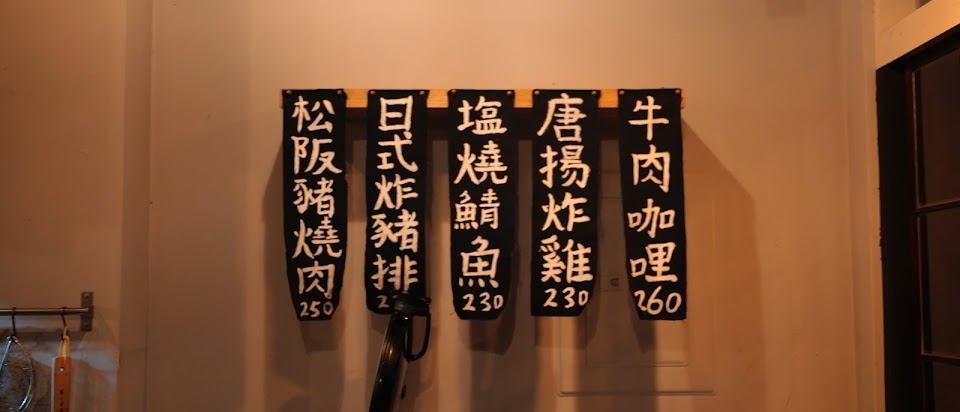 牛肉咖哩
260
唐揚炸雞
230
塩燒鯖魚
230
日式炸豬排
松阪豬燒肉
250